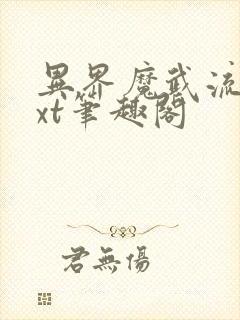 異界魔武流
xt筆趣閣
君無傷